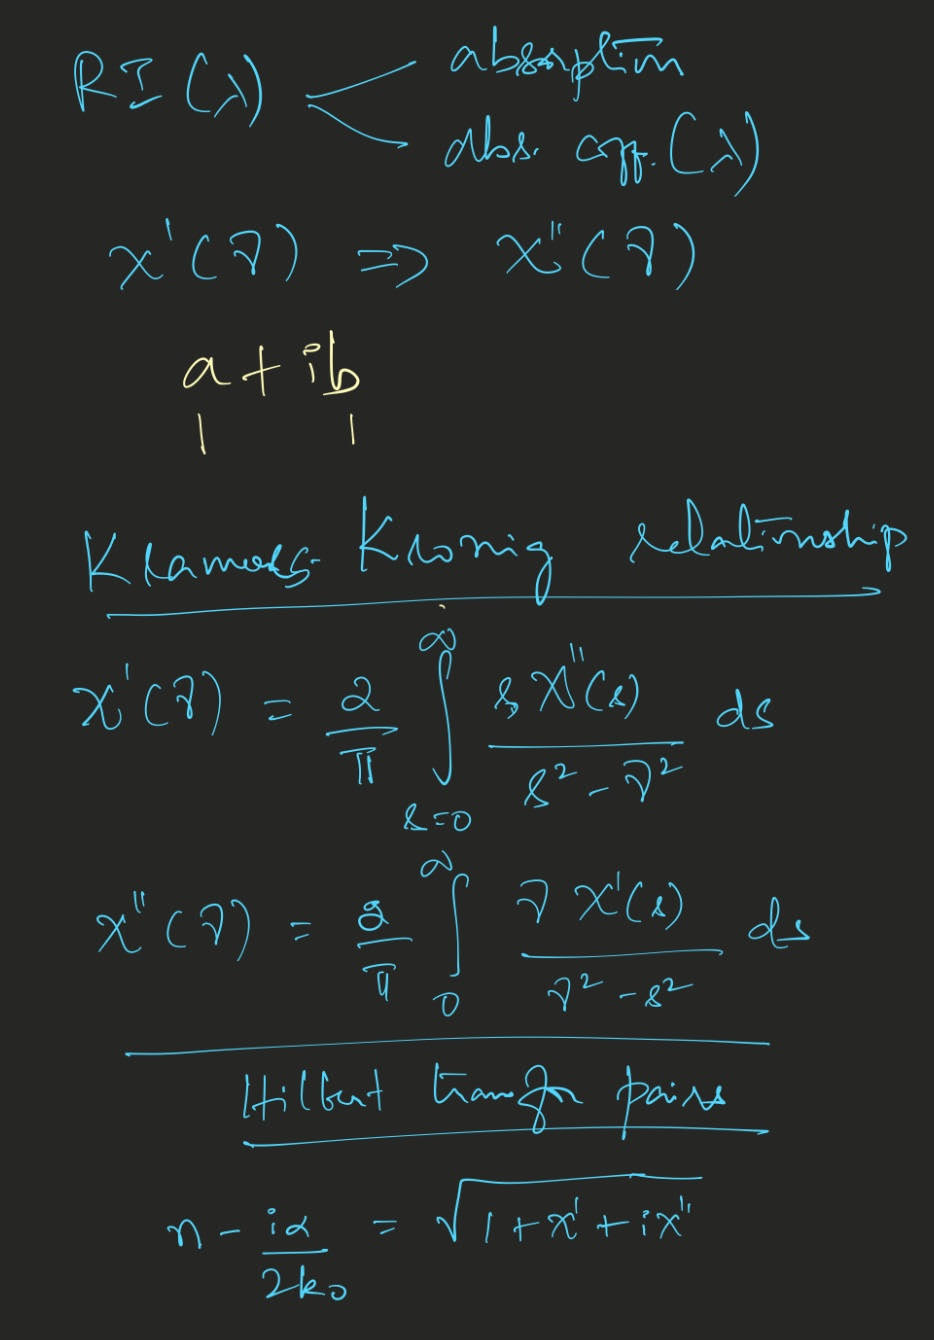 RI(λ)
absorption
abs. coff.(λ)
χ'(ν) ⇒ χ''(ν)
a + ib
Kramers-Kronig relationship
χ'(ν) = 2/π ∫_{s=0}^{∞} s χ''(s) / (s² - ν²) ds
χ''(ν) = 2/π ∫_{0}^{∞} ν χ'(s) / (ν² - s²) ds
Hilbert transfor pairs
n - iα/2k₀ = √(1 + χ' + iχ'')